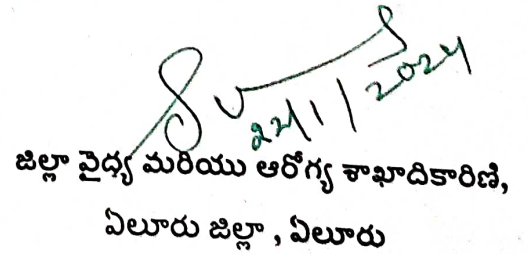 22/1/2024
జిల్లా వైధ్య మరియు ఆరోగ్య శాఖాదికారిణి,
ఏలూరు జిల్లా , ఏలూరు